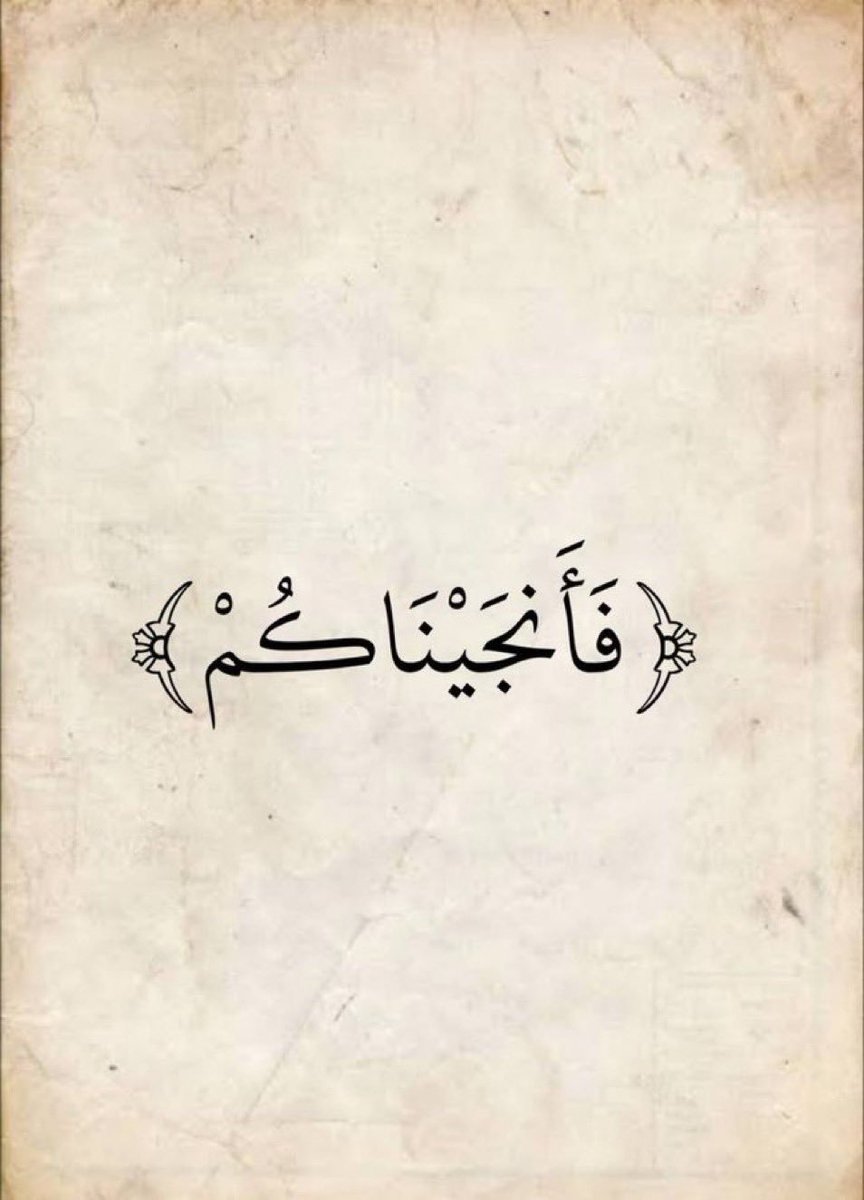 ﴿فَأَنجَيْنَاكُمْ﴾